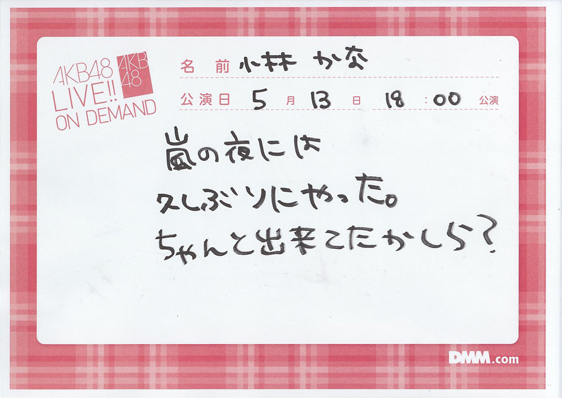 AKB48
LIVE!!
ON DEMAND
AKB
48
名前 小林 かな
公演日 5月13日 18:00公演
嵐の夜には
久しぶりにやった。
ちゃんと出来てたかしら?
DMM.com